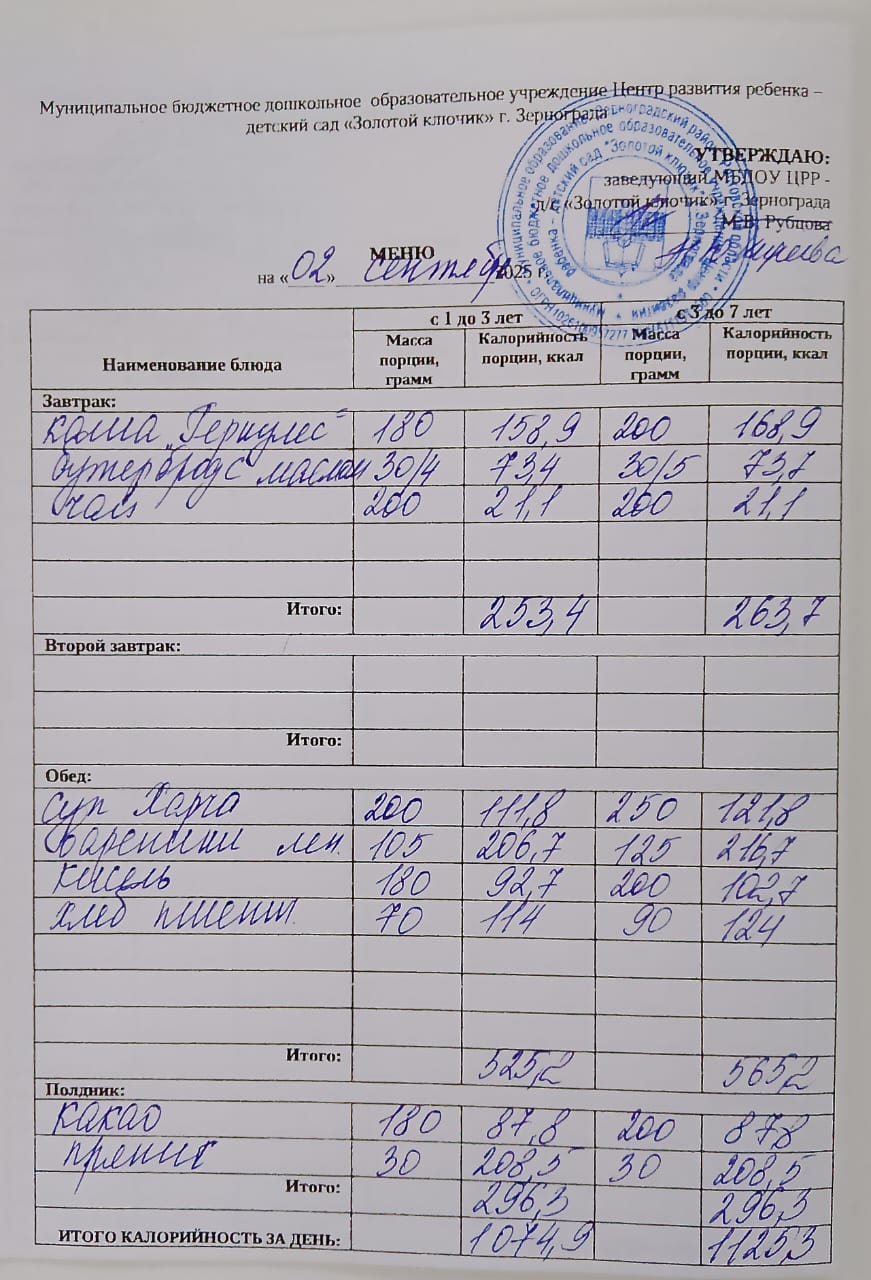 Муниципальное бюджетное дошкольное образовательное учреждение Центр развития ребенка –
детский сад «Золотой ключик» г. Зернограда
УТВЕРЖДАЮ:
заведующий МБДОУ ЦРР -
д/с «Золотой ключик» г. Зернограда
М.В. Рубцова
МЕНЮ
на «02» сентября 2025 г.
Наименование блюда
с 1 до 3 лет с 3 до 7 лет
Масса порции, грамм Калорийность порции, ккал Масса порции, грамм Калорийность порции, ккал
Завтрак:
каша „Геркулес" 180 158,9 200 168,9
бутерброд с маслом 30/4 73,4 30/5 73,7
чай 200 21,1 200 21,1
Итого: 253,4 263,7
Второй завтрак:
Итого:
Обед:
суп Харчо 200 111,8 250 121,8
вареники лен. 105 206,7 125 216,7
кисель 180 92,7 200 102,7
хлеб пшенич. 70 114 90 124
Итого: 525,2 565,2
Полдник:
какао 180 87,8 200 87,8
пряник 30 208,5 30 208,5
Итого: 296,3 296,3
ИТОГО КАЛОРИЙНОСТЬ ЗА ДЕНЬ: 1074,9 1125,3